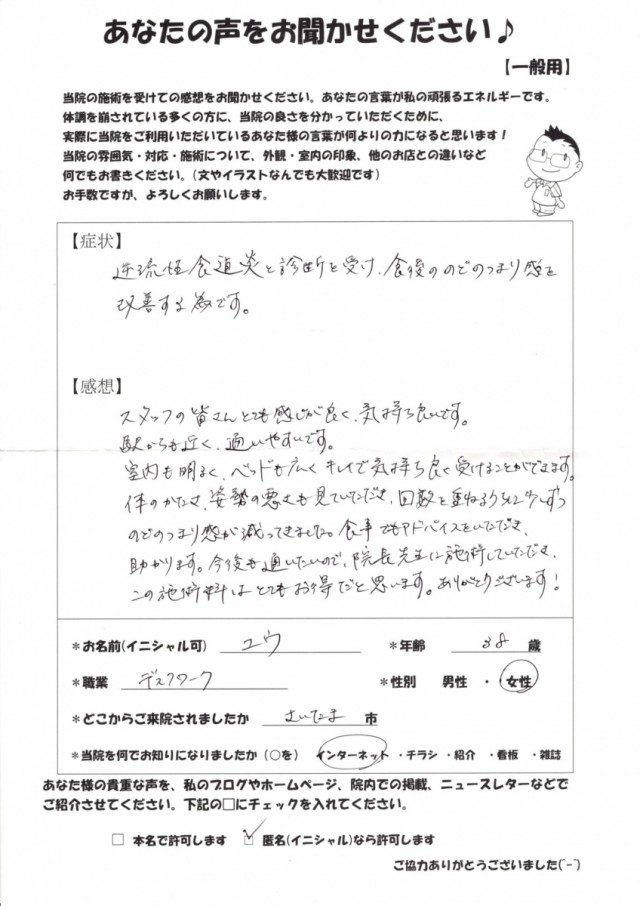 あなたの声をお聞かせください♪
【一般用】
当院の施術を受けての感想をお聞かせください。あなたの言葉が私の頑張るエネルギーです。
体調を崩されている多くの方に、当院の良さを分かっていただくために、
実際に当院をご利用いただいているあなた様の言葉が何よりの力になると思います！
当院の雰囲気・対応・施術について、外観・室内の印象、他のお店との違いなど
何でもお書きください。（文やイラストなんでも大歓迎です）
お手数ですが、よろしくお願いします。
【症状】
逆流性食道炎と診断を受け、食後ののどのつまり感を
改善する為です。
【感想】
スタッフの皆さんとても感じが良く、気持ち良いです。
駅からも近く、通いやすいです。
室内も明るく、ベッドも広くキレイで気持ち良く受けることができます。
体のかたさ、姿勢の悪さも見ていただき、回数を重ねるうちに少しずつ
のどのつまり感が減ってきました。食事でもアドバイスをいただき、
助かります。今後も通いたいので、院長先生に施術していただき、
この施術料はとてもお得だと思います。ありがとうございます！
＊お名前(イニシャル可) ユウ ＊年齢 38 歳
＊職業 デスクワーク ＊性別 男性 ・ 女性
＊どこからご来院されましたか さいたま 市
＊当院を何でお知りになりましたか（○を） インターネット ・チラシ ・紹介 ・看板 ・雑誌
あなた様の貴重な声を、私のブログやホームページ、院内での掲載、ニュースレターなどで
ご紹介させてください。下記の□にチェックを入れてください。
□ 本名で許可します ☑ 匿名(イニシャル)なら許可します
ご協力ありがとうございました(^-^)